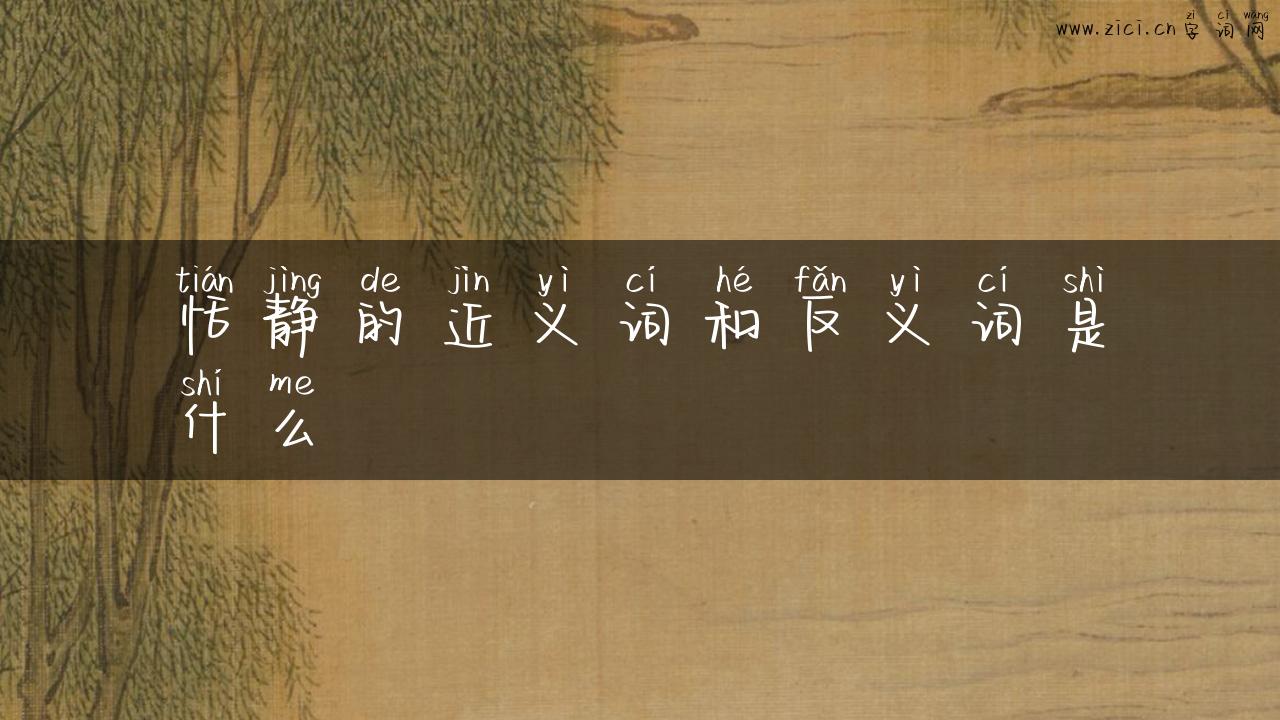 zì cí wǎng
www.zici.cn 字词网
tián jìng de jìn yì cí hé fǎn yì cí shì
恬静的近义词和反义词是
shí me
什么